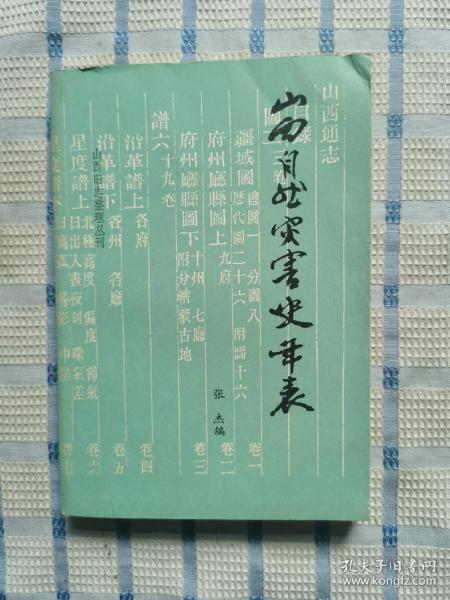 山西自然灾害史年表
张 杰编
山西旧志整理丛刊
山西通志
目錄
圖二卷
疆域圖 總圖一 分圖八 歷代圖二十六 附圖十六 卷一
府州廳縣圖上 九府 卷二
府州廳縣圖下 十州 七廳 附分轄蒙古地 卷三
譜六十九卷
沿革譜上 各府 卷四
沿革譜下 各州 各廳 卷五
星度譜上 北極高度 偏度 節氣 日出入晝夜刻 朦氣差 卷六
星度譜下 日高弧 晷影 中星 卷七
孔夫子旧书网
www.kongfz.com